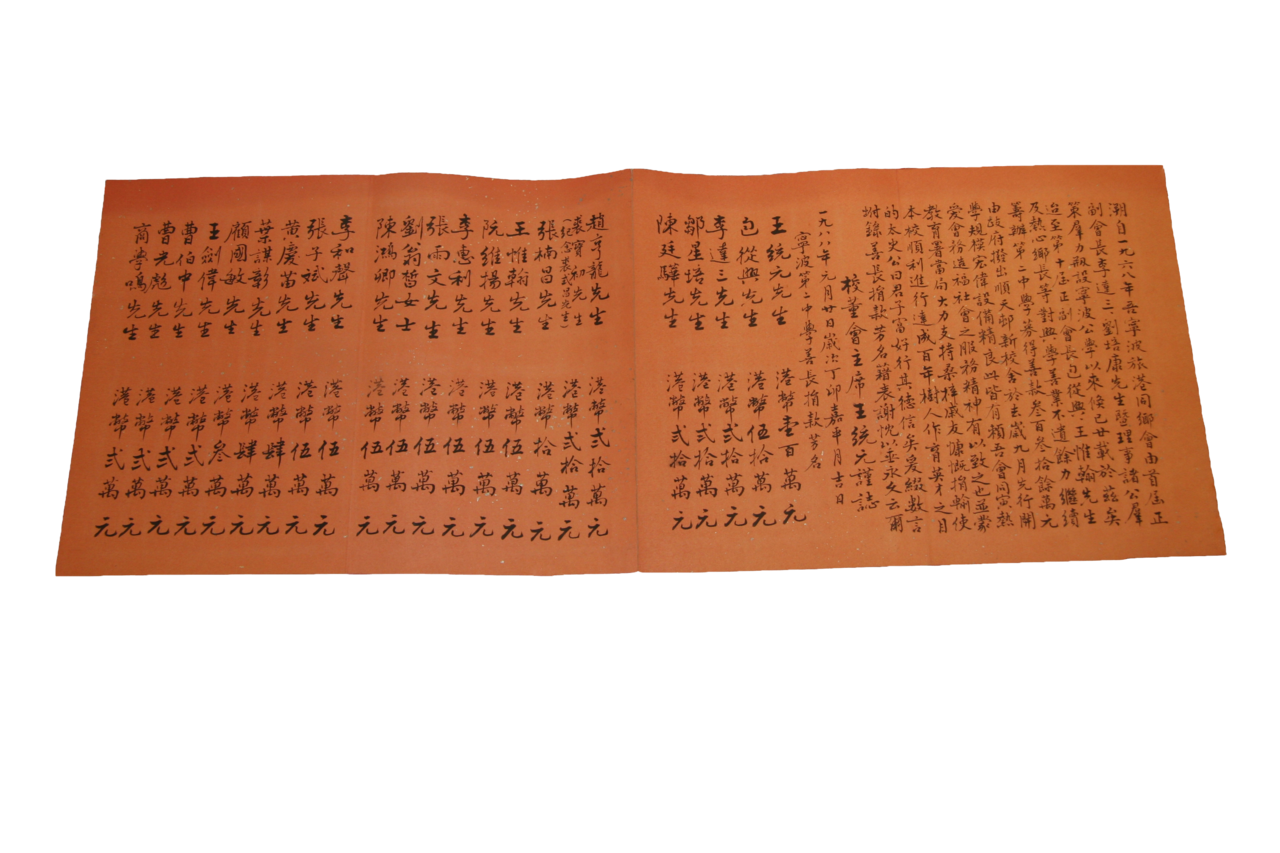 溯自一九六八年吾寧波旅港同鄉會由首屆正
副會長李達三劉培康先生暨理事諸公羣
策羣力叛設寧波公學以來倐已廿載於茲矣
迨至第十屆正副會長包從興王惟翰先生
及熱心鄉長等對興學善業不遺餘力繼續
籌辦第二中學募得善款叁百叁拾餘萬元
由政府撥出順天邨新校舍於去歲九月先行開
學規模宏偉設備精良此皆有賴吾會同寅熱
愛會務造福社會之服務精神有以致之也並蒙
教育署當局大力支持桑梓戚友慷慨捐輸使
本校順利進行達成百年樹人作育英才之目
的太史公曰君子當好行其德信矣爰綴數言
坿錄善長捐款芳名籍表謝忱以並永文云爾
校董會主席王統元謹誌
一九八八年元月廿日歲次丁卯嘉平月吉日
寧波第二中學善長捐款芳名
王統元先生 港幣壹百萬元
包從興先生 港幣伍拾萬元
李達三先生 港幣弍拾萬元
鄒星培先生 港幣弍拾萬元
陳廷驊先生 港幣弍拾萬元
趙亨龍先生 港幣弍拾萬元
裘寶初先生 港幣弍拾萬元
(紀念裘武昌先生)
張楠昌先生 港幣拾萬元
王惟翰先生 港幣伍萬元
阮維揚先生 港幣伍萬元
李惠利先生 港幣伍萬元
張雨文先生 港幣伍萬元
劉翁皙女士 港幣伍萬元
陳鴻卿先生 港幣伍萬元
李和聲先生 港幣伍萬元
張子斌先生 港幣伍萬元
黄慶苗先生 港幣肆萬元
葉謀彰先生 港幣肆萬元
顧國敏先生 港幣叁萬元
王劍偉先生 港幣弍萬元
曹伯中先生 港幣弍萬元
曹光彪先生 港幣弍萬元
商學鳴先生 港幣弍萬元